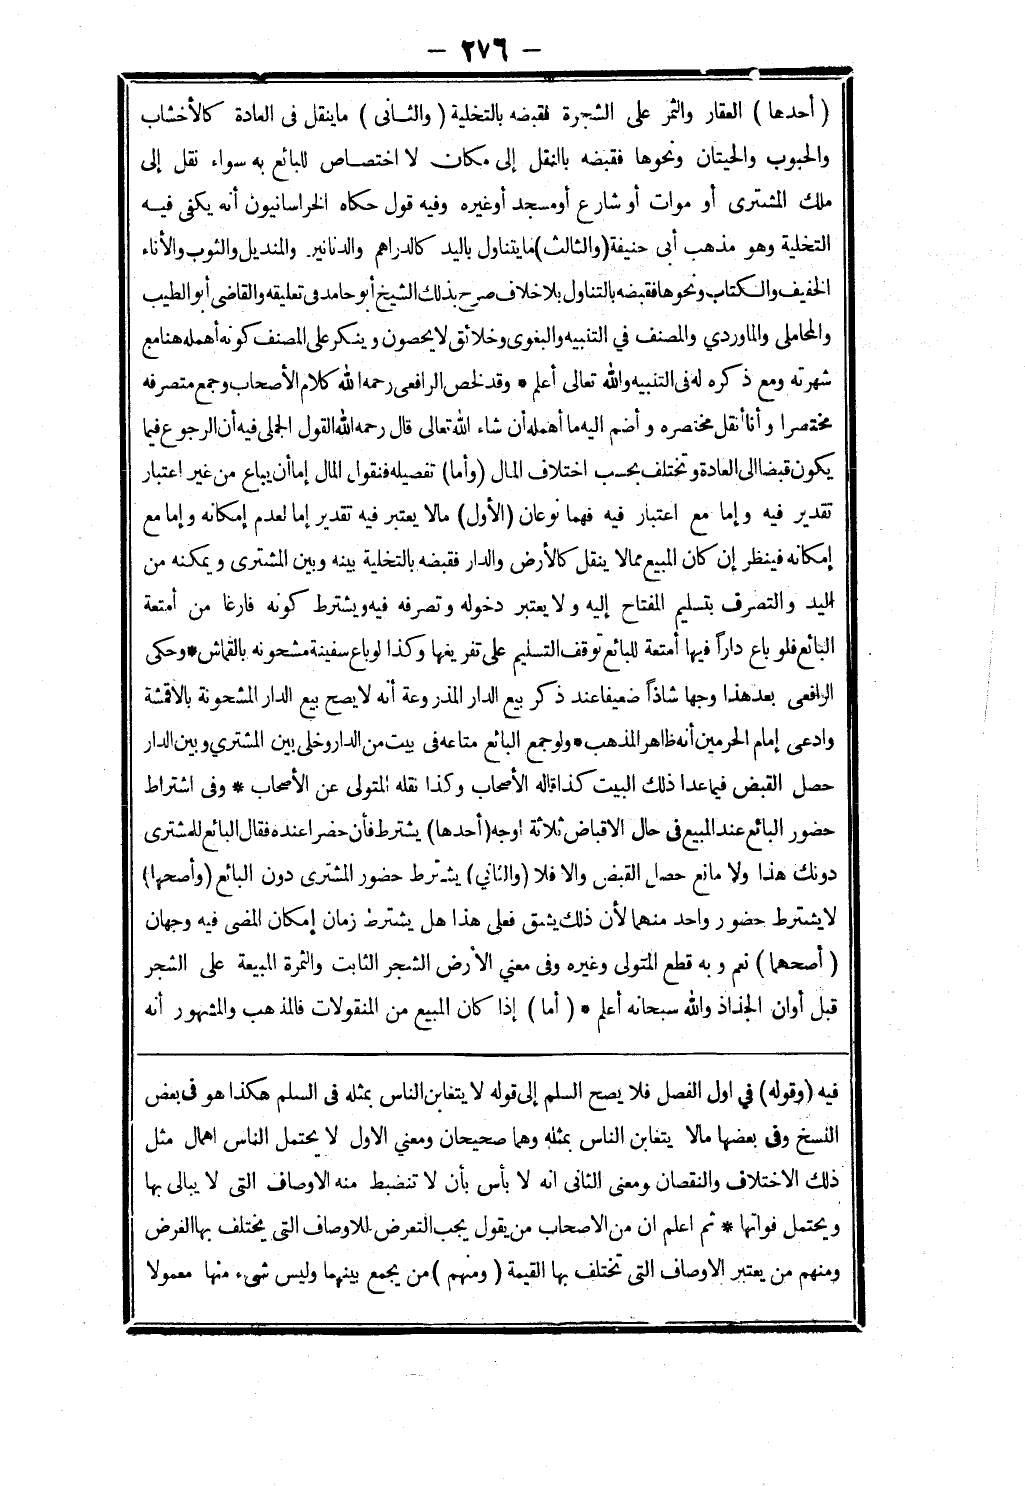 — ٢٧٦ —
( أحدها ) العقار والثمر على الشجرة فقبضه بالتخلية ( والثانى ) ماينقل فى العادة كالأخشاب
والحبوب والحيتان ونحوها فقبضه بالنقل إلى مكان لا اختصاص للبائع به سواء نقل إلى
ملك المشترى أو موات أو شارع أومسجد أوغيره وفيه قول حكاه الخراسانيون أنه يكفى فيه
التخلية وهو مذهب أبى حنيفة (والثالث) مايتناول باليد كالدراهم والدنانير والمنديل والثوب والأناء
الخفيف والكتاب ونحوها فقبضه بالتناول بلاخلاف صرح بذلك الشيخ أبو حامد فى تعليقه والقاضى أبو الطيب
والمحاملى والماوردي والمصنف في التنبيه والبغوى وخلائق لايحصون وينكر على المصنف كونه أهمله هنا مع
شهرته ومع ذكره له فى التنبيه والله تعالى أعلم * وقد لخص الرافعى رحمه الله كلام الأصحاب وجمع متصرفه
مختصرا وأنا أنقل مختصره وأضم اليه ما أهمله أن شاء الله تعالى قال رحمه الله القول الجملى فيه أن الرجوع فيما
يكون قبضا الى العادة وتختلف بحسب اختلاف المال (وأما) تفصيله فنقول المال إما أن يباع من غير اعتبار
تقدير فيه وإما مع اعتبار فيه فهما نوعان (الأول) مالا يعتبر فيه تقدير إما لعدم إمكانه وإما مع
إمكانه فينظر إن كان المبيع ممالا ينقل كالأرض والدار فقبضه بالتخلية بينه وبين المشترى ويمكنه من
اليد والتصرف بتسليم المفتاح إليه ولا يعتبر دخوله وتصرفه فيه ويشترط كونه فارغا من أمتعة
البائع فلو باع داراً فيها أمتعة للبائع توقف التسليم على تفريغها وكذا لو باع سفينة مشحونه بالقماش * وحكى
الرافعى بعد هذا وجها شاذاً ضعيفا عند ذكر بيع الدار المذروعة أنه لا يصح بيع الدار المشحونة بالاقمشة
وادعى إمام الحرمين أنه ظاهر المذهب * ولو جمع البائع متاعه فى بيت من الدار وخلى بين المشتري وبين الدار
حصل القبض فيما عدا ذلك البيت كذا قاله الأصحاب وكذا نقله المتولى عن الأصحاب * وفى اشتراط
حضور البائع عند المبيع فى حال الاقباض ثلاثة اوجه (أحدها) يشترط فأن حضرا عنده فقال البائع للمشترى
دونك هذا ولا مانع حصل القبض والا فلا (والثاني) يشترط حضور المشترى دون البائع (وأصحها)
لا يشترط حضور واحد منهما لأن ذلك يشق فعلى هذا هل يشترط زمان إمكان المضى فيه وجهان
( أصحهما ) نعم وبه قطع المتولى وغيره وفى معني الأرض الشجر الثابت والثمرة المبيعة على الشجر
قبل أوان الجذاذ والله سبحانه أعلم * ( أما ) إذا كان المبيع من المنقولات فالمذهب والمشهور أنه
فيه (وقوله) في اول الفصل فلا يصح السلم إلى قوله لا يتغابن الناس بمثله فى السلم هكذا هو فى بعض
النسخ وفى بعضها مالا يتغابن الناس بمثله وهما صحيحان ومعني الاول لا يحتمل الناس اهمال مثل
ذلك الاختلاف والنقصان ومعنى الثانى انه لا بأس بأن لا تنضبط منه الاوصاف التى لا يبالى بها
ويحتمل فواتها * ثم اعلم ان من الاصحاب من يقول يجب التعرض للاوصاف التى يختلف بها الغرض
ومنهم من يعتبر الاوصاف التى تختلف بها القيمة ( ومنهم ) من يجمع بينهما وليس شىء منها معمولا